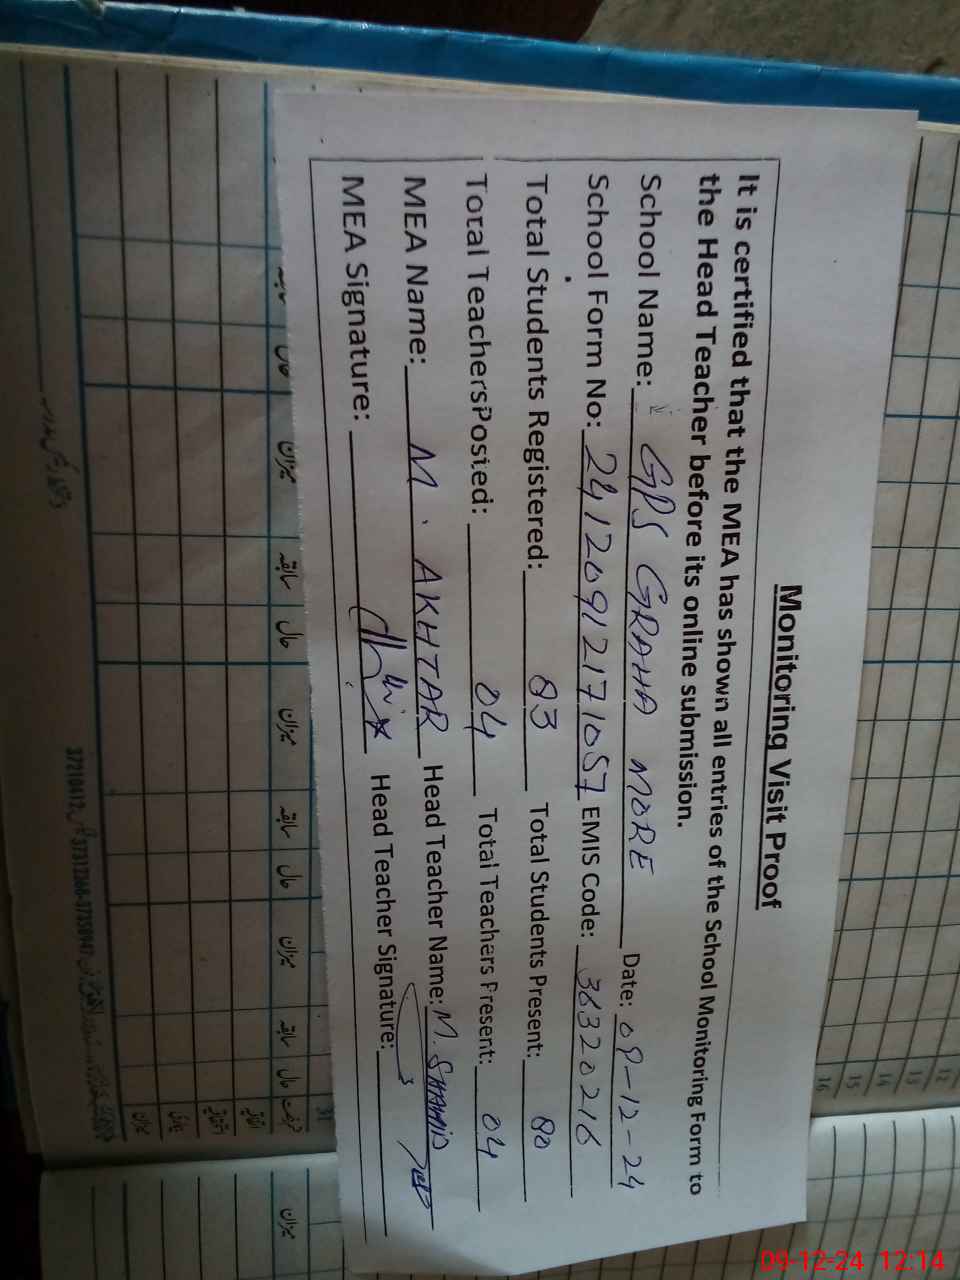 Monitoring Visit Proof
It is certified that the MEA has shown all entries of the School Monitoring Form to
the Head Teacher before its online submission.
School Name: GPS GRAHA MORE Date: 09-12-24
School Form No: 24120912171057 EMIS Code: 36320216
Total Students Registered: 83 Total Students Present: 80
Total Teachers Posted: 04 Total Teachers Present: 04
MEA Name: M. AKHTAR Head Teacher Name: M. SHAHID
MEA Signature: Head Teacher Signature:
میزان سابقہ حال میزان سابقہ حال میزان سابقہ حال
میزان
12
13
14
15
16
31
09-12-24 12:14